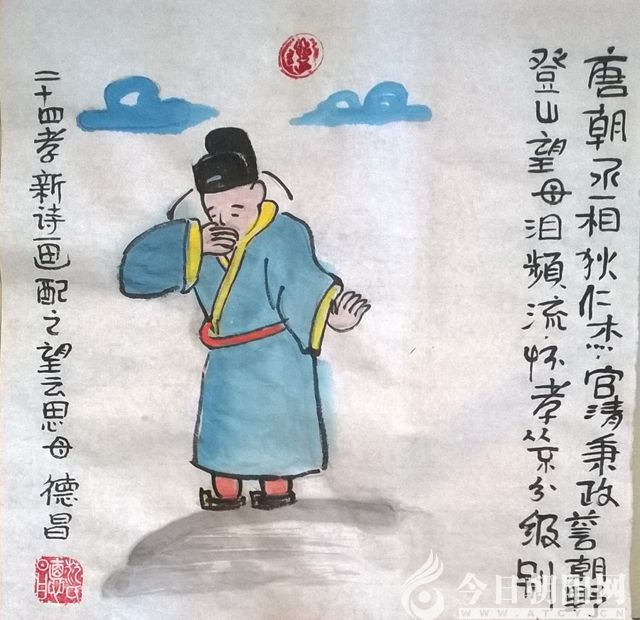 唐朝丞相狄仁杰官清秉政誉朝野
登山望母泪频流怀孝分级别
二十四孝新诗画配之望云思母 德昌
今日朝阳网